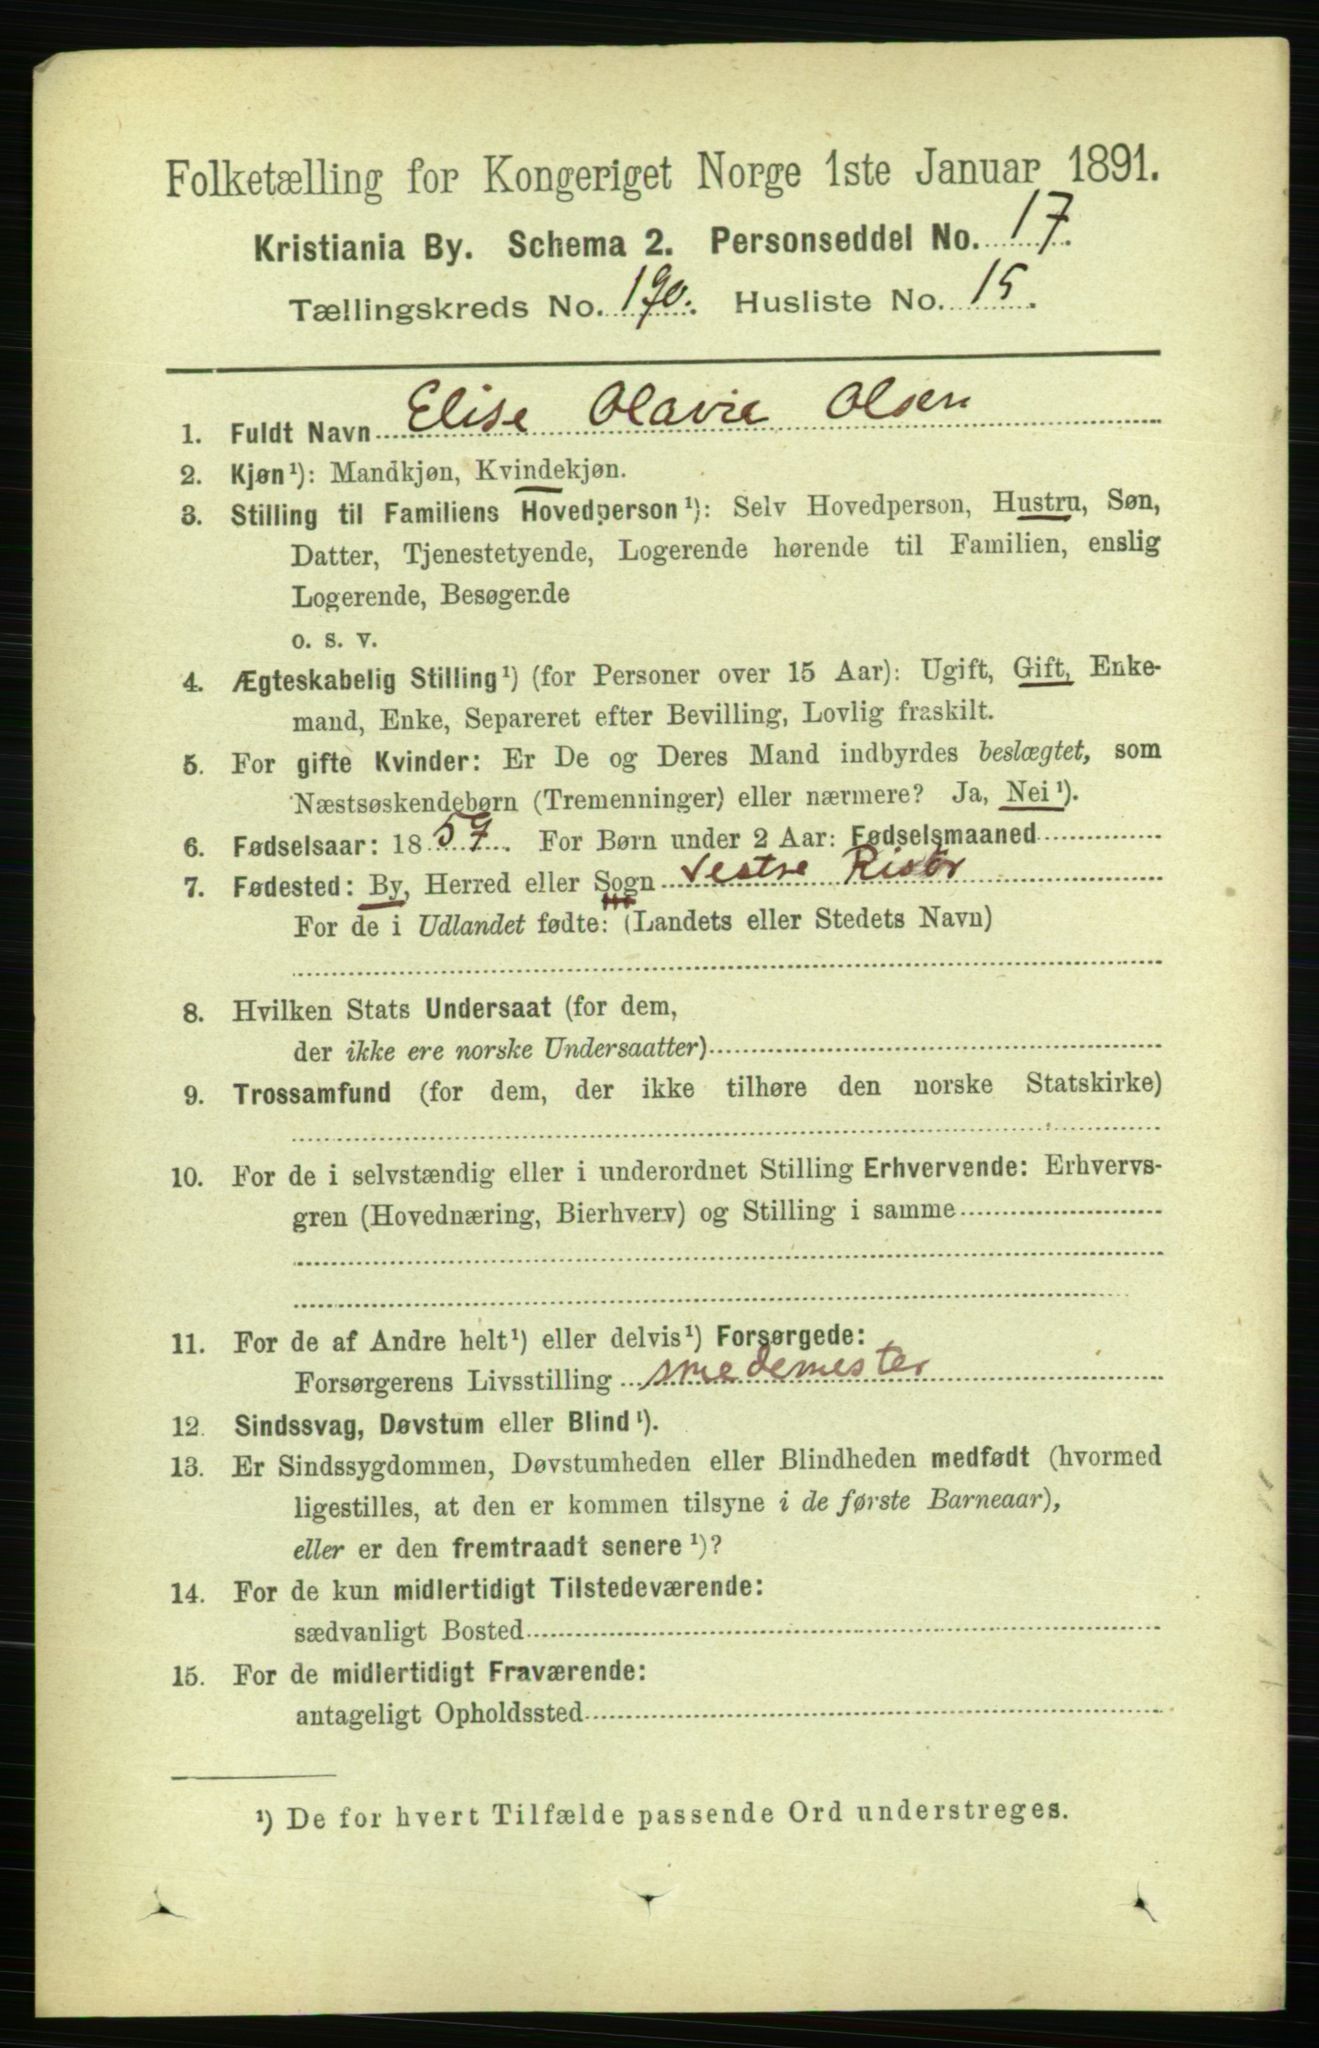 Folketælling for Kongeriget Norge 1ste Januar 1891.
Kristiania By. Schema 2. Personseddel No. 17.
Tællingskreds No. 190. Husliste No. 15.
1. Fuldt Navn Elise Olavie Olsen
2. Kjøn¹): Mandkjøn, Kvindekjøn.
3. Stilling til Familiens Hovedperson¹): Selv Hovedperson, Hustru, Søn,
Datter, Tjenestetyende, Logerende hørende til Familien, enslig
Logerende, Besøgende
o. s. v.
4. Ægteskabelig Stilling¹) (for Personer over 15 Aar): Ugift, Gift, Enke-
mand, Enke, Separeret efter Bevilling, Lovlig fraskilt.
5. For gifte Kvinder: Er De og Deres Mand indbyrdes beslægtet, som
Næstsøskendebørn (Tremenninger) eller nærmere? Ja, Nei¹).
6. Fødselsaar: 1859. For Børn under 2 Aar: Fødselsmaaned
7. Fødested: By, Herred eller Sogn Vestre Risør
For de i Udlandet fødte: (Landets eller Stedets Navn)
8. Hvilken Stats Undersaat (for dem,
der ikke ere norske Undersaatter)
9. Trossamfund (for dem, der ikke tilhøre den norske Statskirke)
10. For de i selvstændig eller i underordnet Stilling Erhvervende: Erhvervs-
gren (Hovednæring, Bierhverv) og Stilling i samme
11. For de af Andre helt¹) eller delvis¹) Forsørgede:
Forsørgerens Livsstilling smedemester
12. Sindssvag, Døvstum eller Blind¹).
13. Er Sindssygdommen, Døvstumheden eller Blindheden medfødt (hvormed
ligestilles, at den er kommen tilsyne i de første Barneaar),
eller er den fremtraadt senere¹)?
14. For de kun midlertidigt Tilstedeværende:
sædvanligt Bosted
15. For de midlertidigt Fraværende:
antageligt Opholdssted
¹) De for hvert Tilfælde passende Ord understreges.